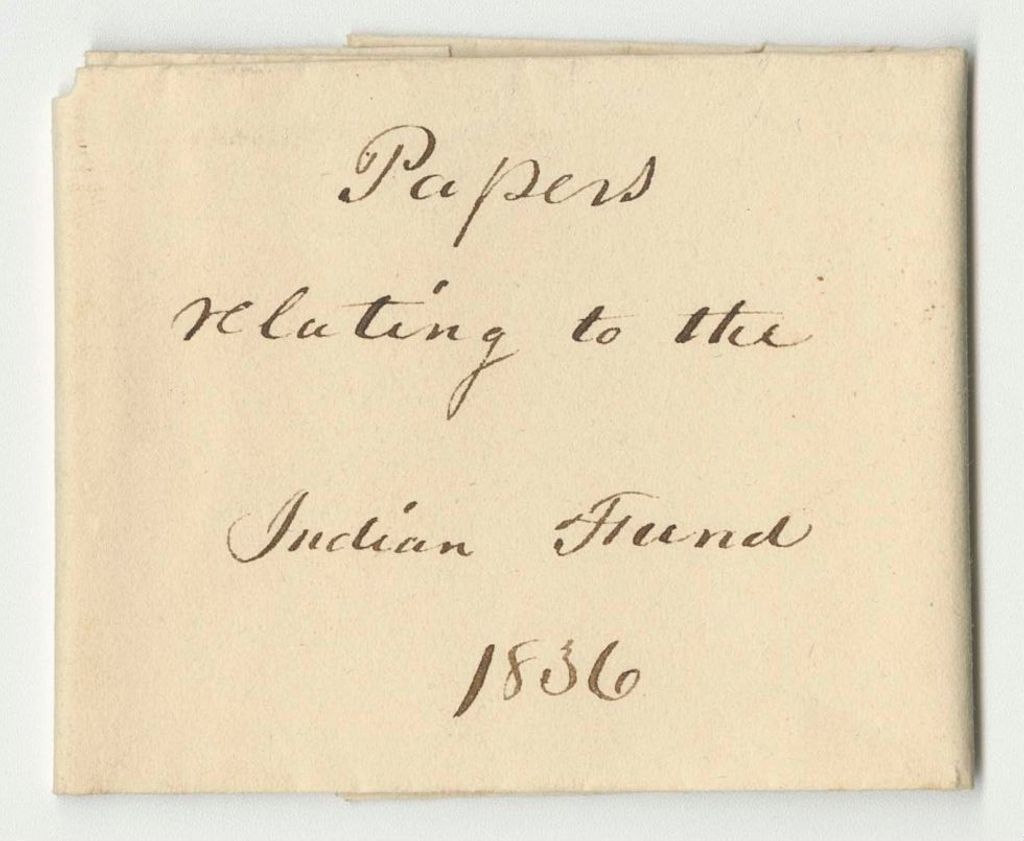 Papers
relating to the
Indian Fund
1836